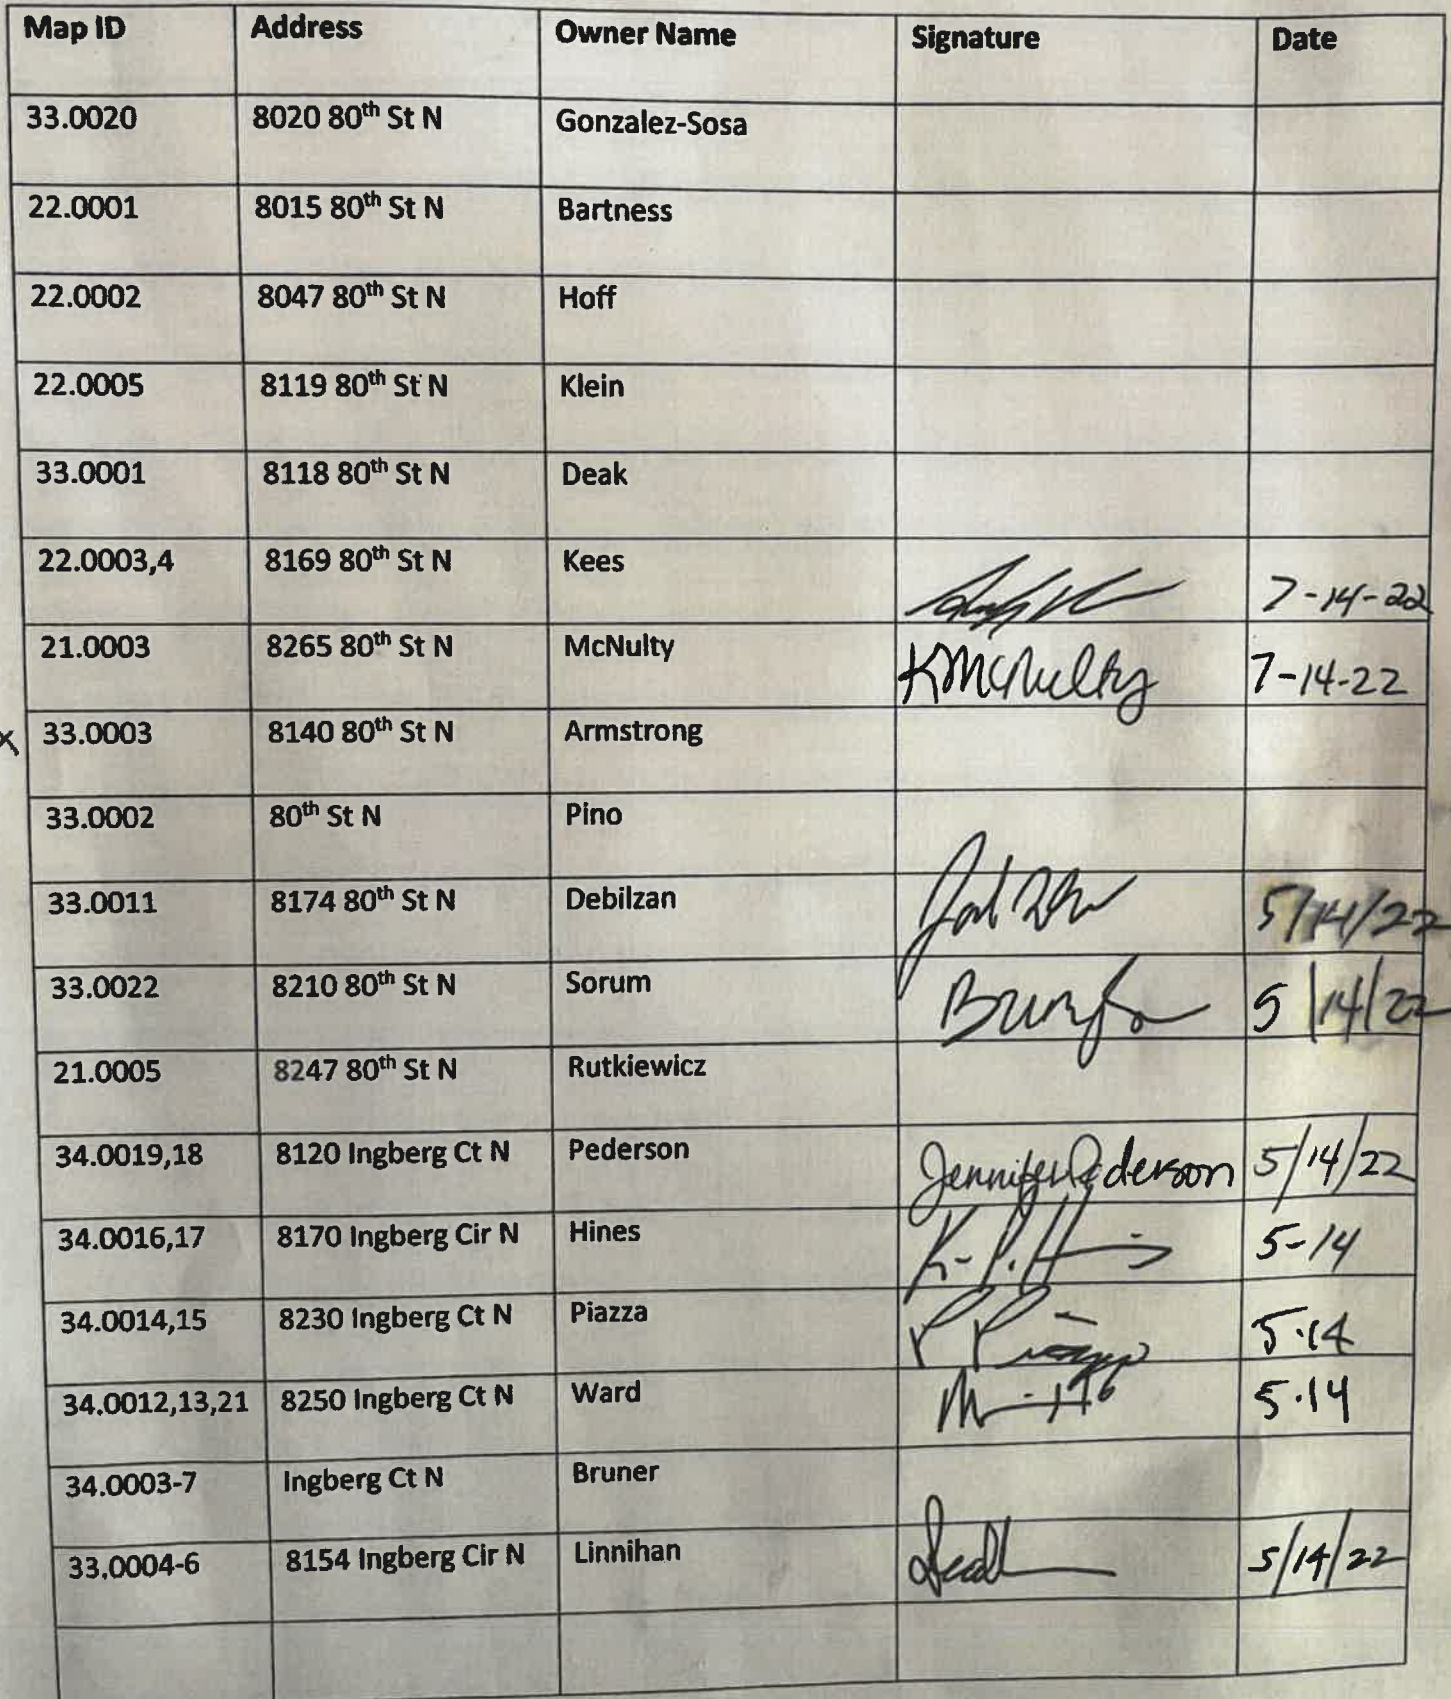 Map ID Address Owner Name Signature Date
33.0020 8020 80th St N Gonzalez-Sosa
22.0001 8015 80th St N Bartness
22.0002 8047 80th St N Hoff
22.0005 8119 80th St N Klein
33.0001 8118 80th St N Deak
22.0003,4 8169 80th St N Kees 7-14-22
21.0003 8265 80th St N McNulty KMcNulty 7-14-22
x 33.0003 8140 80th St N Armstrong
33.0002 80th St N Pino
33.0011 8174 80th St N Debilzan 5/14/22
33.0022 8210 80th St N Sorum 5/14/22
21.0005 8247 80th St N Rutkiewicz
34.0019,18 8120 Ingberg Ct N Pederson Jennifer Pederson 5/14/22
34.0016,17 8170 Ingberg Cir N Hines 5-14
34.0014,15 8230 Ingberg Ct N Piazza 5.14
34.0012,13,21 8250 Ingberg Ct N Ward 5.14
34.0003-7 Ingberg Ct N Bruner
33.0004-6 8154 Ingberg Cir N Linnihan 5/14/22